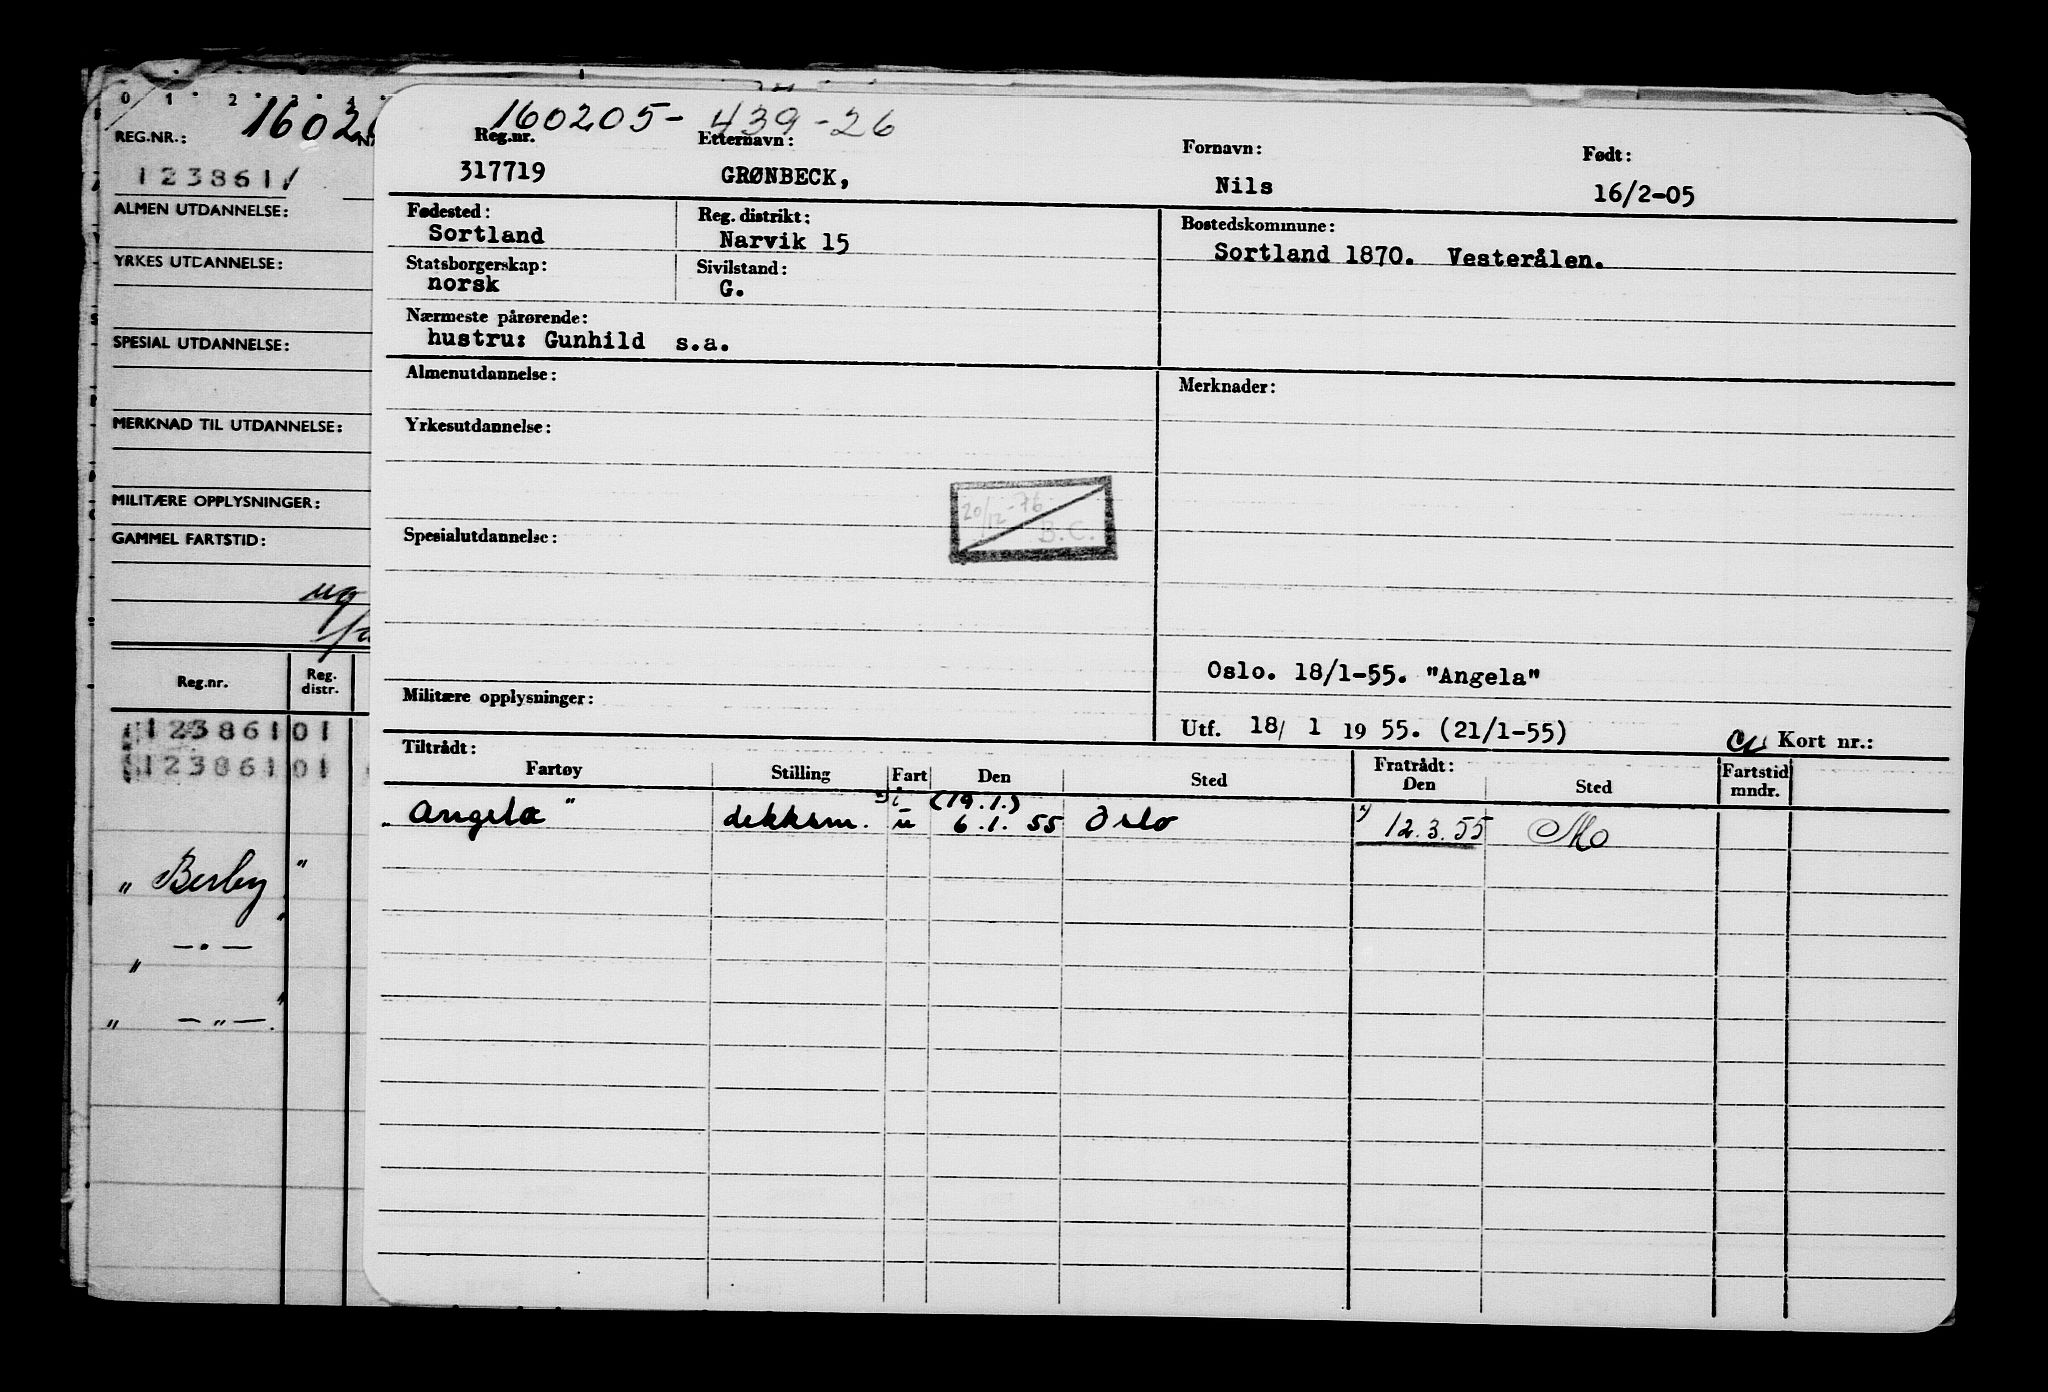 0 1 2 3 4
REG.NR.:
123861
ALMEN UTDANNELSE:
YRKES UTDANNELSE:
SPESIAL UTDANNELSE:
MERKNAD TIL UTDANNELSE:
MILITÆRE OPPLYSNINGER:
GAMMEL FARTSTID:
Reg.nr. Reg. distr.
123861 01
123861 01
„ Berby "
„ — • — "
„ — „ — "
160205- 439-26
Reg.nr. Etternavn: Fornavn: Født:
317719 GRØNBECK, Nils 16/2-05
Fødested: Reg. distrikt: Bostedskommune:
Sortland Narvik 15 Sortland 1870. Vesterålen.
Statsborgerskap: Sivilstand:
norsk G.
Nærmeste pårørende:
hustru: Gunhild s.a.
Almenutdannelse: Merknader:
Yrkesutdannelse:
20/12-76
B.C.
Spesialutdannelse:
Oslo. 18/1-55. "Angela"
Militære opplysninger:
Utf. 18/ 1 19 55. (21/1-55) Kort nr.:
Tiltrådt: Fratrådt:
Fartøy Stilling Fart Den Sted Den Sted Fartstid mndr.
(19.1.)
„Angela" dekksm. u 6.1.55 Oslo 12.3.55 Mo